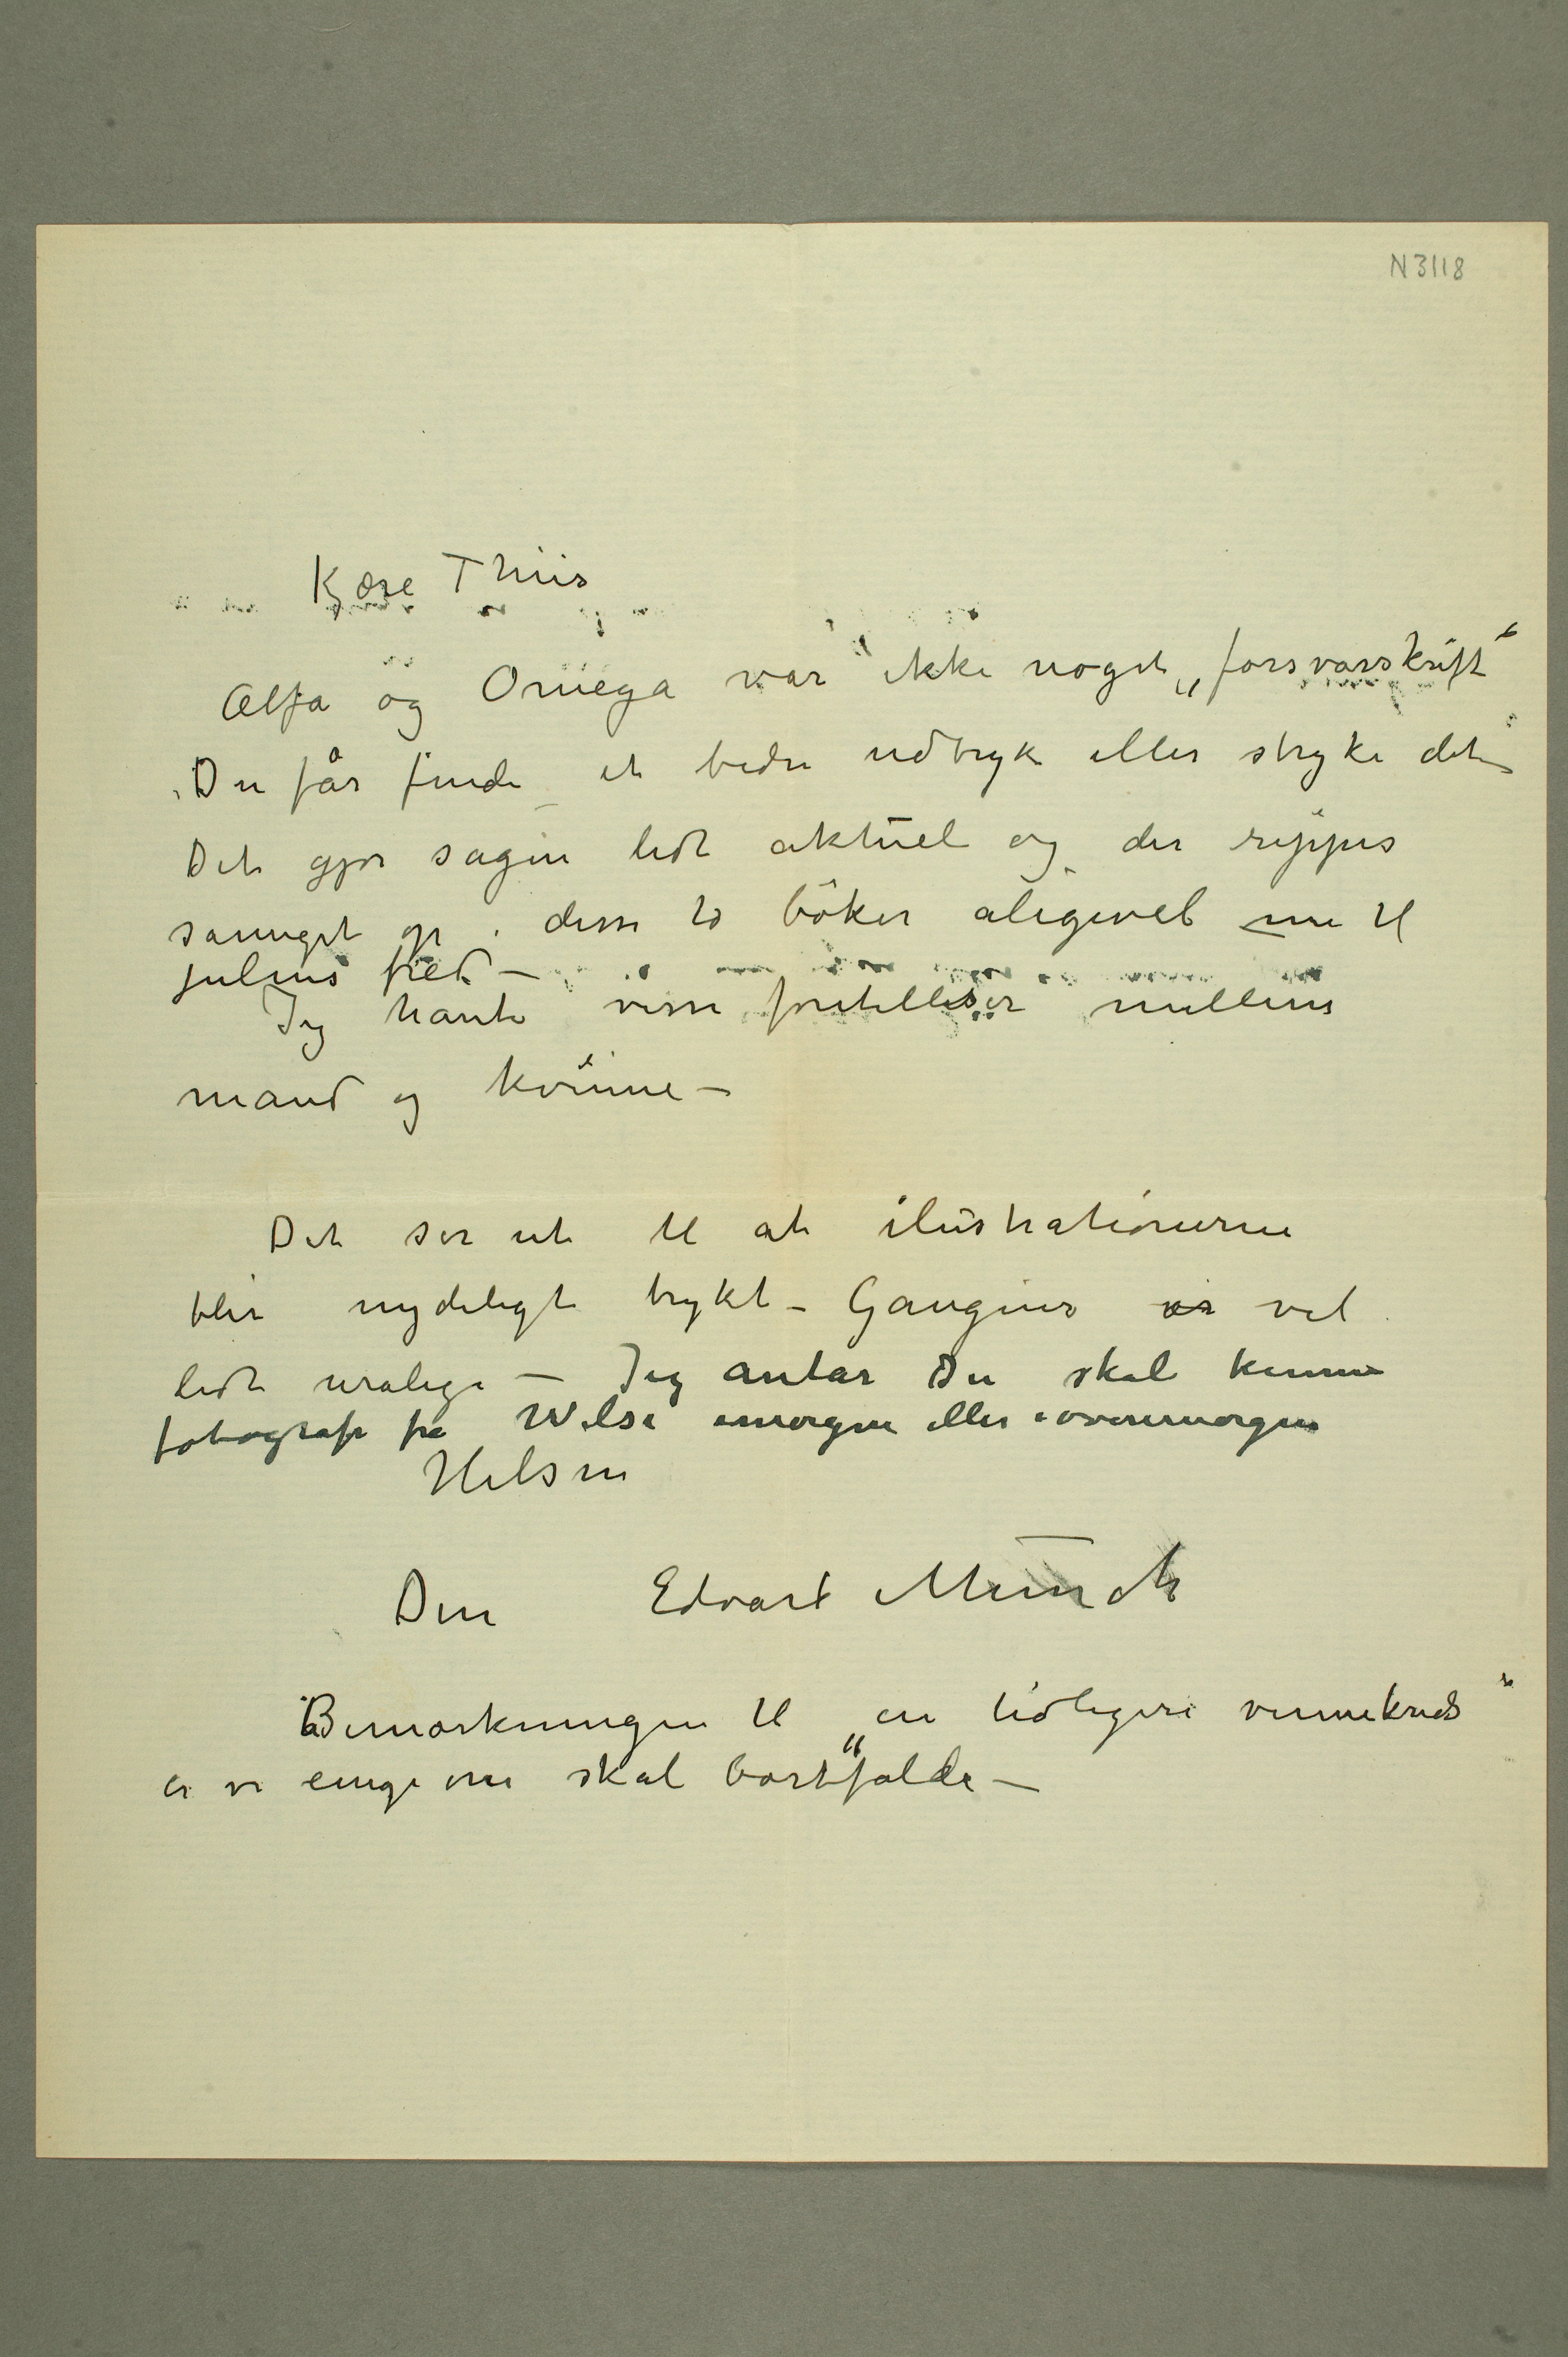 N 3118
Kjære Thiis
Alfa og Omega var ikke noget „forsvarskrift“
Du får finde et bedre udtryk eller stryke det –
Det gjør sagen lidt aktuel og der rippes
saa meget op i disse to bøker aligevel nu til
julens fred –
Jeg hørte visse fortellelser mellem
mand og kvinne –
Det ser ut til at ilustrationerne
blir nydeligt trykt – Gaugins er vel
lidt urolige – Jeg antar Du skal kunne
fotografi fra Wilse imorgen eller iovermorgen
Hilsen
Din Edvard Munch
Bemærkningen til „en tidligere vennekreds“
er vi enige om skal bortfalde –